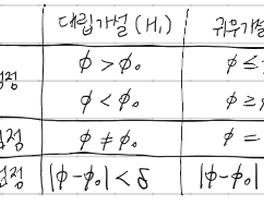 대립가설 (H₁) 귀무가설
정 ϕ > ϕ₀ ϕ ≤
ϕ < ϕ₀ ϕ ≥
정 ϕ ≠ ϕ₀ ϕ =
정 |ϕ-ϕ₀| < δ |ϕ-ϕ₀|